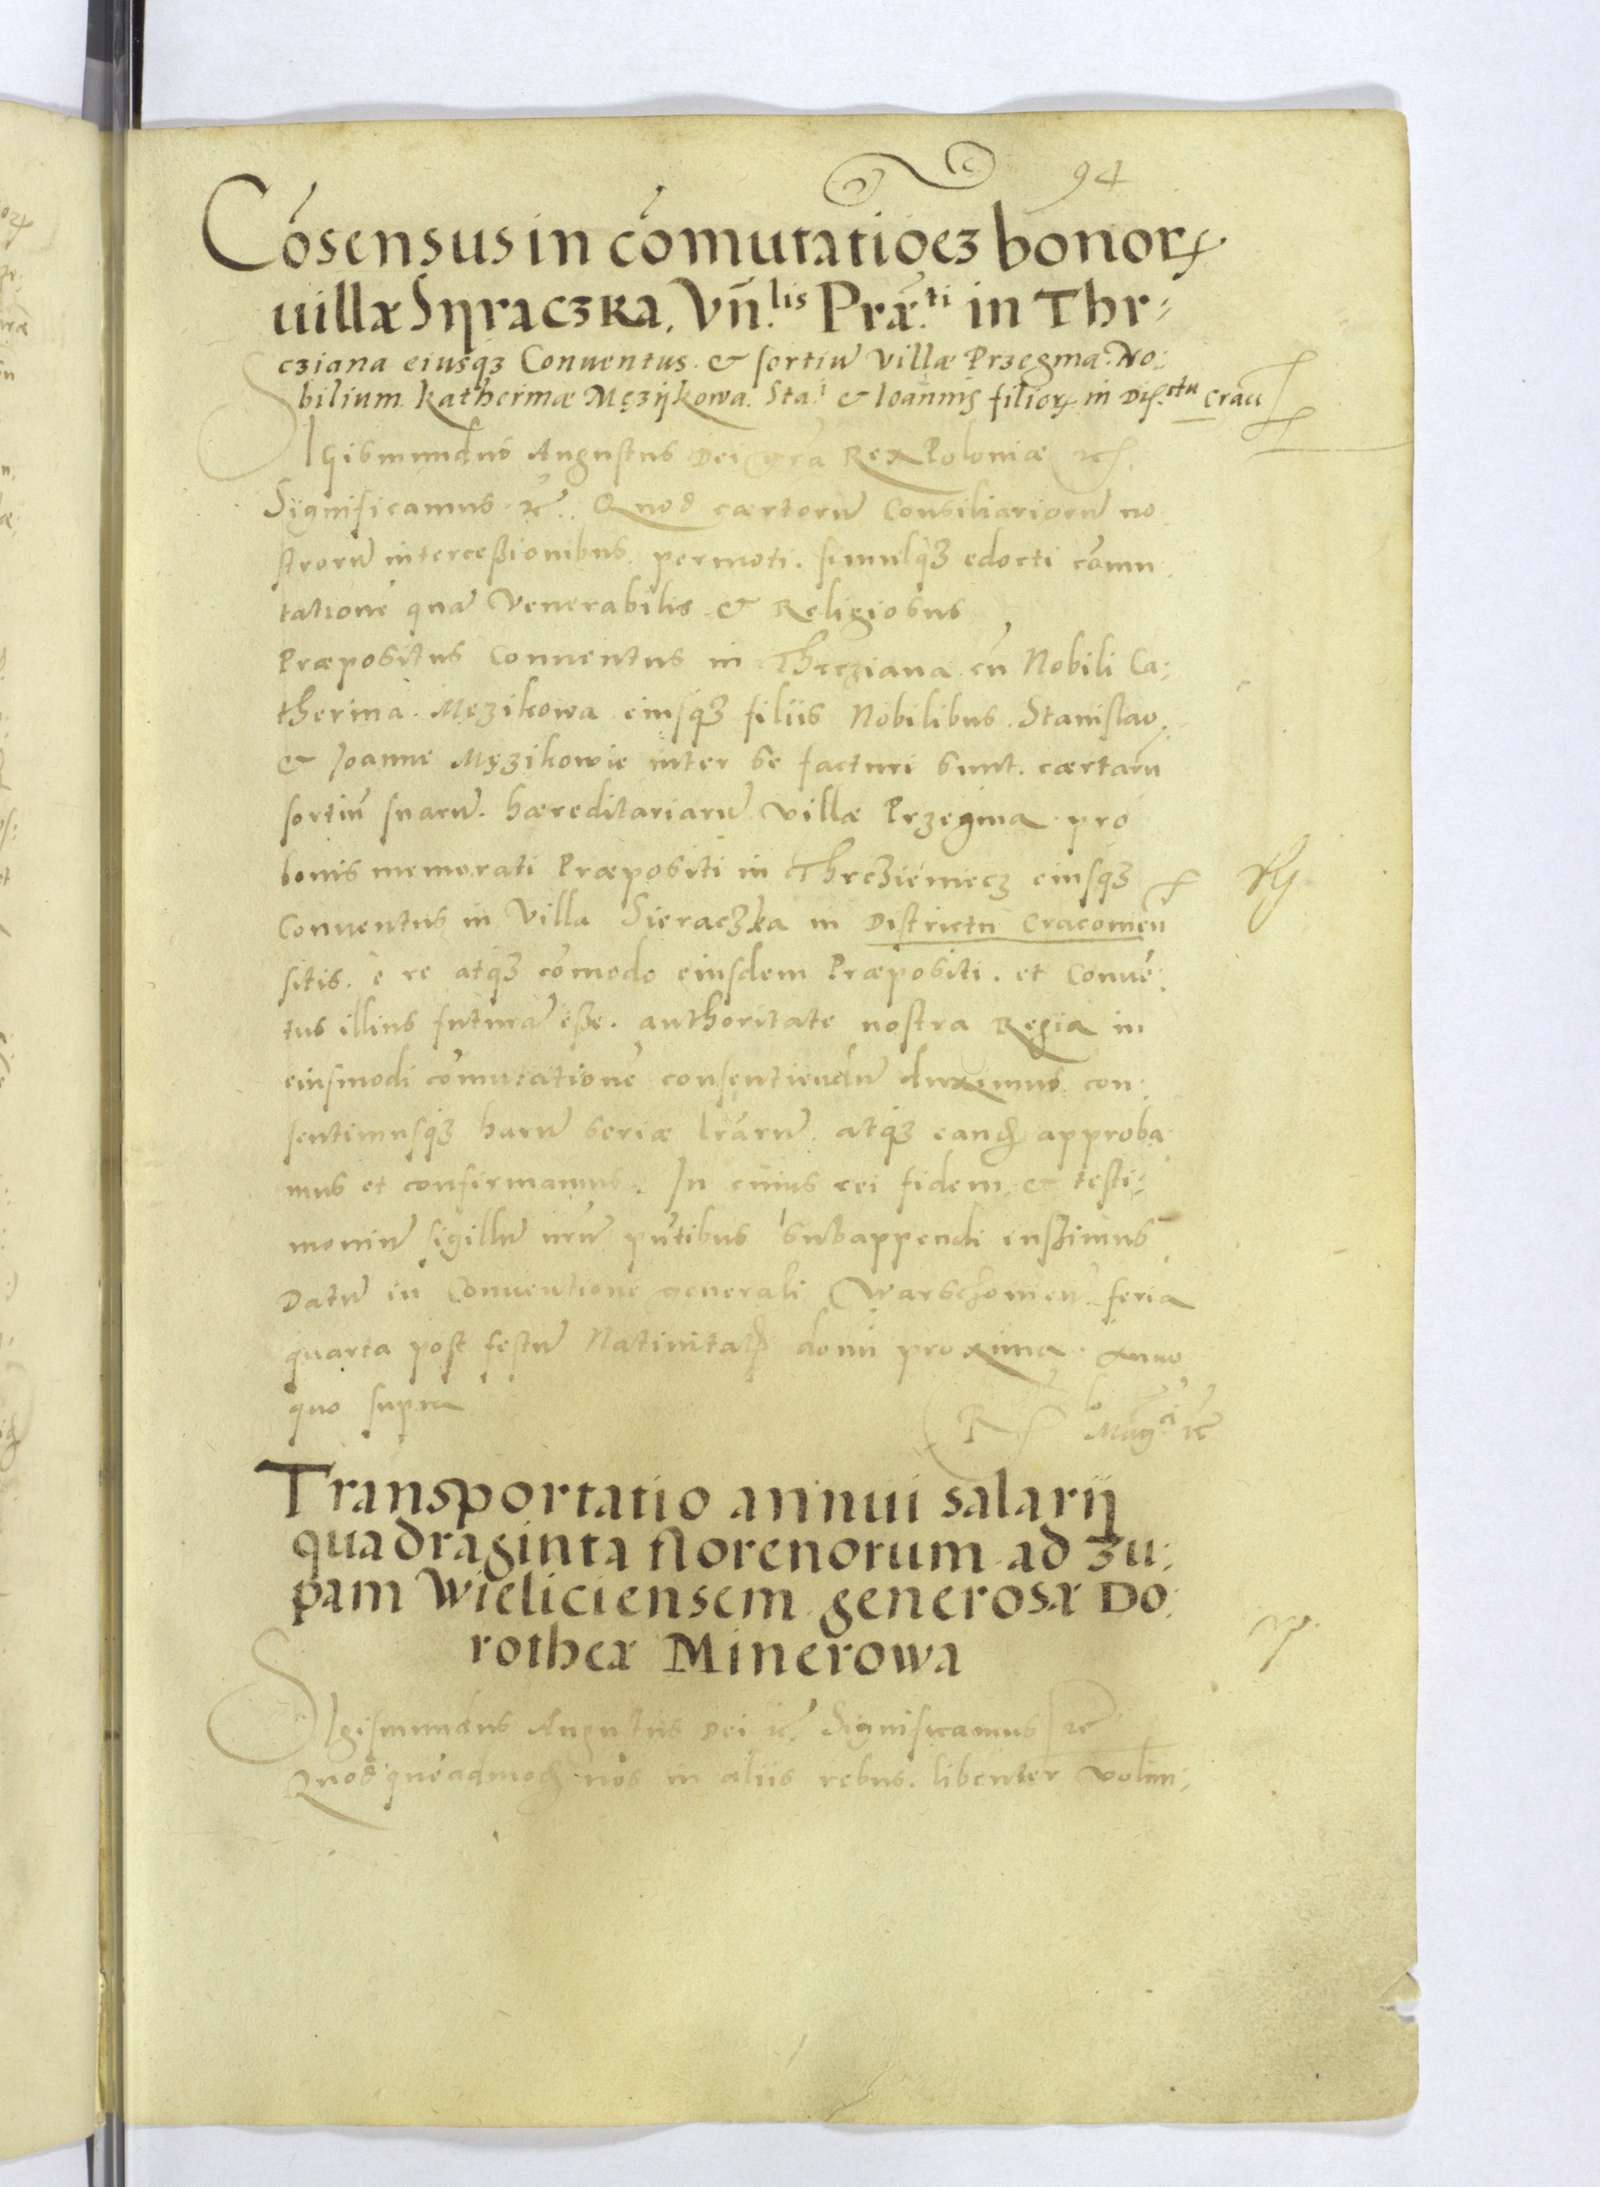 94
Cōsensus in cōmutatiōēʒ bonorꝝ
uillæ Sÿraczka, Vn̄.lis Præ.ti in Thr⸗
cziana eiusqʒ Conuentus. & sortiū Villæ Przegīna. No⸗
bilium Katherinæ Męzÿkowa. Sta.i & Ioannis filiorꝝ in Dis.ctu Crac
SIgismundus Augustus Dei gr̄a Rex Poloniæ ꝛc
Significamus ꝛc̄. Quod cærtorū Consiliariorū no
strorū interceßionibus permoti. simulqʒ edocti cōmu
tatione quā Venerabilis & Religiosus
Præpositus Conuentus in Thrcziana cū Nobili Ca⸗
therina. Męzikowa eiusqʒ filiis Nobilibus. Stanislao
& Joanne Męzikowie inter se facturi sunt. cærtarū
sortiū suarū. hæreditariarū Villæ Przegina pro
bonis memorati Præpositi in Thrcziēniecz eiusqʒ
Rg
Conuentus in Villa Sieraczka in Districtu Cracouien
sitis. è re atqʒ cōmodo eiusdem Præpositi. et Conuē⸗
tus illius futurā eße. authoritate nostra Regia in
eiusmodi cōmutationē consentiendū duximus con⸗
sentimusqʒ harū seriæ lr̄arū. atqʒ eandꝫ approba
mus et confirmamus. In cuius rei fidem & testi⸗
moniū sigillū nr̄ū pn̄tibus subappendi iußimus
Datū in Conuentione generali Warschouien. feria
quarta post festū Natiuitatꝭ domi proxima. Anno
quo supra
R Mag.ci ꝛc
Transportatio annui salarÿ
quadraginta florenorum ad zu⸗
pam Wieliciensem generosæ Do⸗
rotheæ Minerowa
SIgismundus Augustus Dei ꝛc̄ Significamus ꝛc̄
Quod quēadmodꝫ nos in aliis rebus. libenter volun⸗